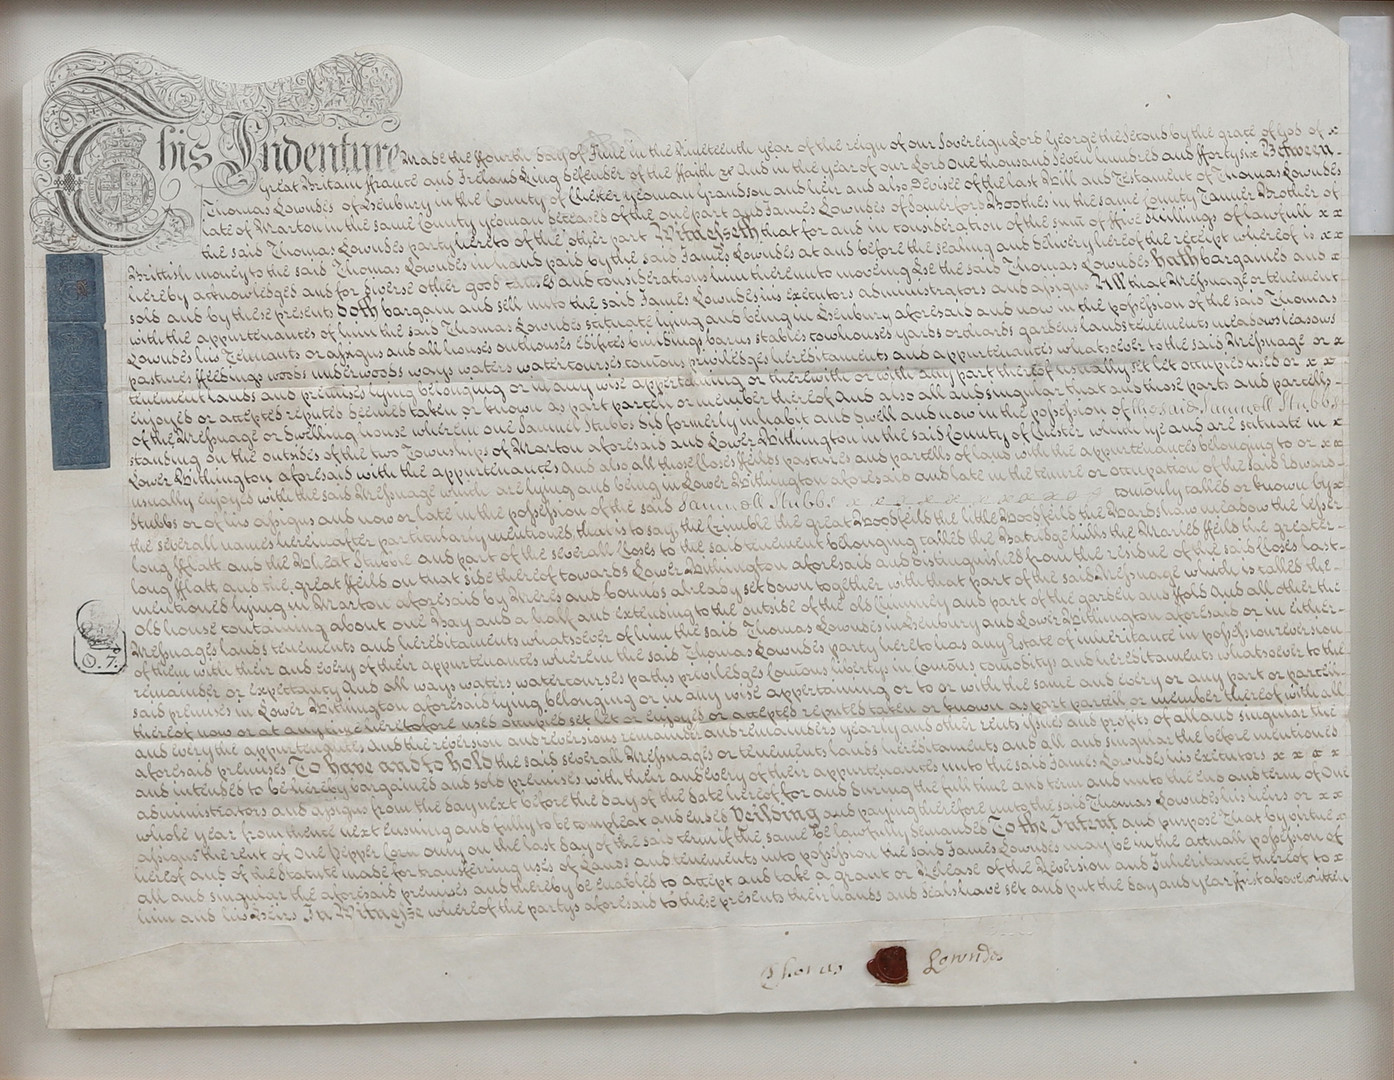 This Indenture Made the ffourth day of June in the Nineteenth year of the reign of our Sovereign Lord George the Second by the grace of God of x
Great Britain ffrance and Ireland King defender of the ffaith &c And in the year of our Lord One thousand Seven hundred and ffortysix Between
Thomas Lowndes of Lsenbury in the County of Chester yeoman Grandson and heir and also Devisee of the last Will and Testament of Thomas Lowndes
late of Marton in the same County yeoman deceased of the one part and James Lowndes of Somerford Boothes in the same County Tanner Brother of
the said Thomas Lowndes party hereto of the other part Witnesseth that for and in consideration of the sum of ffive Shillings of lawfull x x
Brittish money to the said Thomas Lowndes in hand paid by the said James Lowndes at and before the sealing and delivery hereof the receipt whereof is x x
hereby acknowledged and for diverse other good causes and considerations him thereunto moveing he the said Thomas Lowndes hath bargained and x
sold and by these presents doth bargain and sell unto the said James Lowndes his executors administrators and assigns All that Messuage or tenement
with the appurtenances of him the said Thomas Lowndes situate lying and being in Lsenbury aforesaid and now in the possession of the said Thomas
Lowndes his Tennants or assigns and all houses outhouses edifices buildings barns stables cowhouses yards orchards gardens lands tenements meadows leasows
pastures ffeedings woods underwoods ways waters watercourses comons priviledges hereditaments and appurtenances whatsoever to the said Messuage or x
tenement lands and premises lying belonging or in any wise appertaining or therewith or with any part thereof usually set let occupied used or x x
enjoyed or accepted reputed deemed taken or known as part parcell or member thereof And also all and singular that and those parts and parcells
of the Messuage or dwelling house wherein one Samuel Stubbs did formerly inhabit and dwell and now in the possession of the said Samuell Stubbs
standing on the outsides of the two Townships of Marton aforesaid and Lower Withington in the said County of Chester which lye and are situate in x
Lower Withington aforesaid with the appurtenances and also all those closes ffeilds pastures and parcells of land with the appurtenances belonging to or x x
usually enjoyed with the said Messuage which are lying and being in Lower Withington aforesaid and late in the tenure or occupation of the said Edward
Stubbs or of his assigns and now or late in the possession of the said Samuell Stubbs comonly called or known by x
the severall names hereinafter particularly mentioned that is to say the Crumble the great Woodfeild the little Woodfeild the Wardshaw meadow the lesser
long fflatt and the Wheat Stubble and part of the severall Closes to the said tenement belonging called the Batridge hills the Marled ffeild the greater
long fflatt and the great ffeild on that side thereof towards Lower Withington aforesaid and distinguished from the residue of the said closes last
mentioned lying in Marton aforesaid by Meres and bounds already set down together with that part of the said Messuage which is called the
Old house containing about one Bay and a half and extending to the outside of the old Chimney and part of the garden and ffold And all other the
Messuages lands tenements and hereditaments whatsoever of him the said Thomas Lowndes in Lsenbury and Lower Withington aforesaid or in either
of them with their and every of their appurtenances wherein the said Thomas Lowndes party hereto has any Estate of inheritance in possession reversion
remainder or expectancy And all ways waters watercourses paths priviledges comons liberty in comons comoditys and hereditaments whatsoever to the
said premises in Lower Withington aforesaid lying belonging or in any wise appertaining or to or with the same and every or any part or parcell
thereof now or at any time heretofore used occupied set let or enjoyed or accepted reputed taken or known as part parcell or member thereof with all
and every the appurtenances and the reversion and reversions remainder and remainders yearly and other rents issues and profits of all and singular the
aforesaid premises To have and to hold the said severall Messuages or tenements lands hereditaments and all and singular the before mentioned
and intended to be hereby bargained and sold premises with their and every of their appurtenances unto the said James Lowndes his executors x x x x
administrators and assigns from the day next before the day of the date hereof for and during the full time and term and unto the end and term of One
whole year from thence next ensuing and fully to be compleat and ended Yeilding and paying therefore unto the said Thomas Lowndes his heirs or x x
assigns the rent of One Pepper Corn only on the last day of the said term if the same be lawfully demanded To the Intent and purpose That by virtue
hereof and of the statute made for transferring uses of Lands and tenements into possession the said James Lowndes may be in the actuall possession of
all and singular the aforesaid premises and thereby be enabled to accept and take a grant or Release of the Reversion and Inheritance thereof to x
him and his Heirs In Witnesse whereof the partys aforesaid to these presents their hands and seals have set and put the day and year ffirst above written
O. 7.
Thomas Lowndes